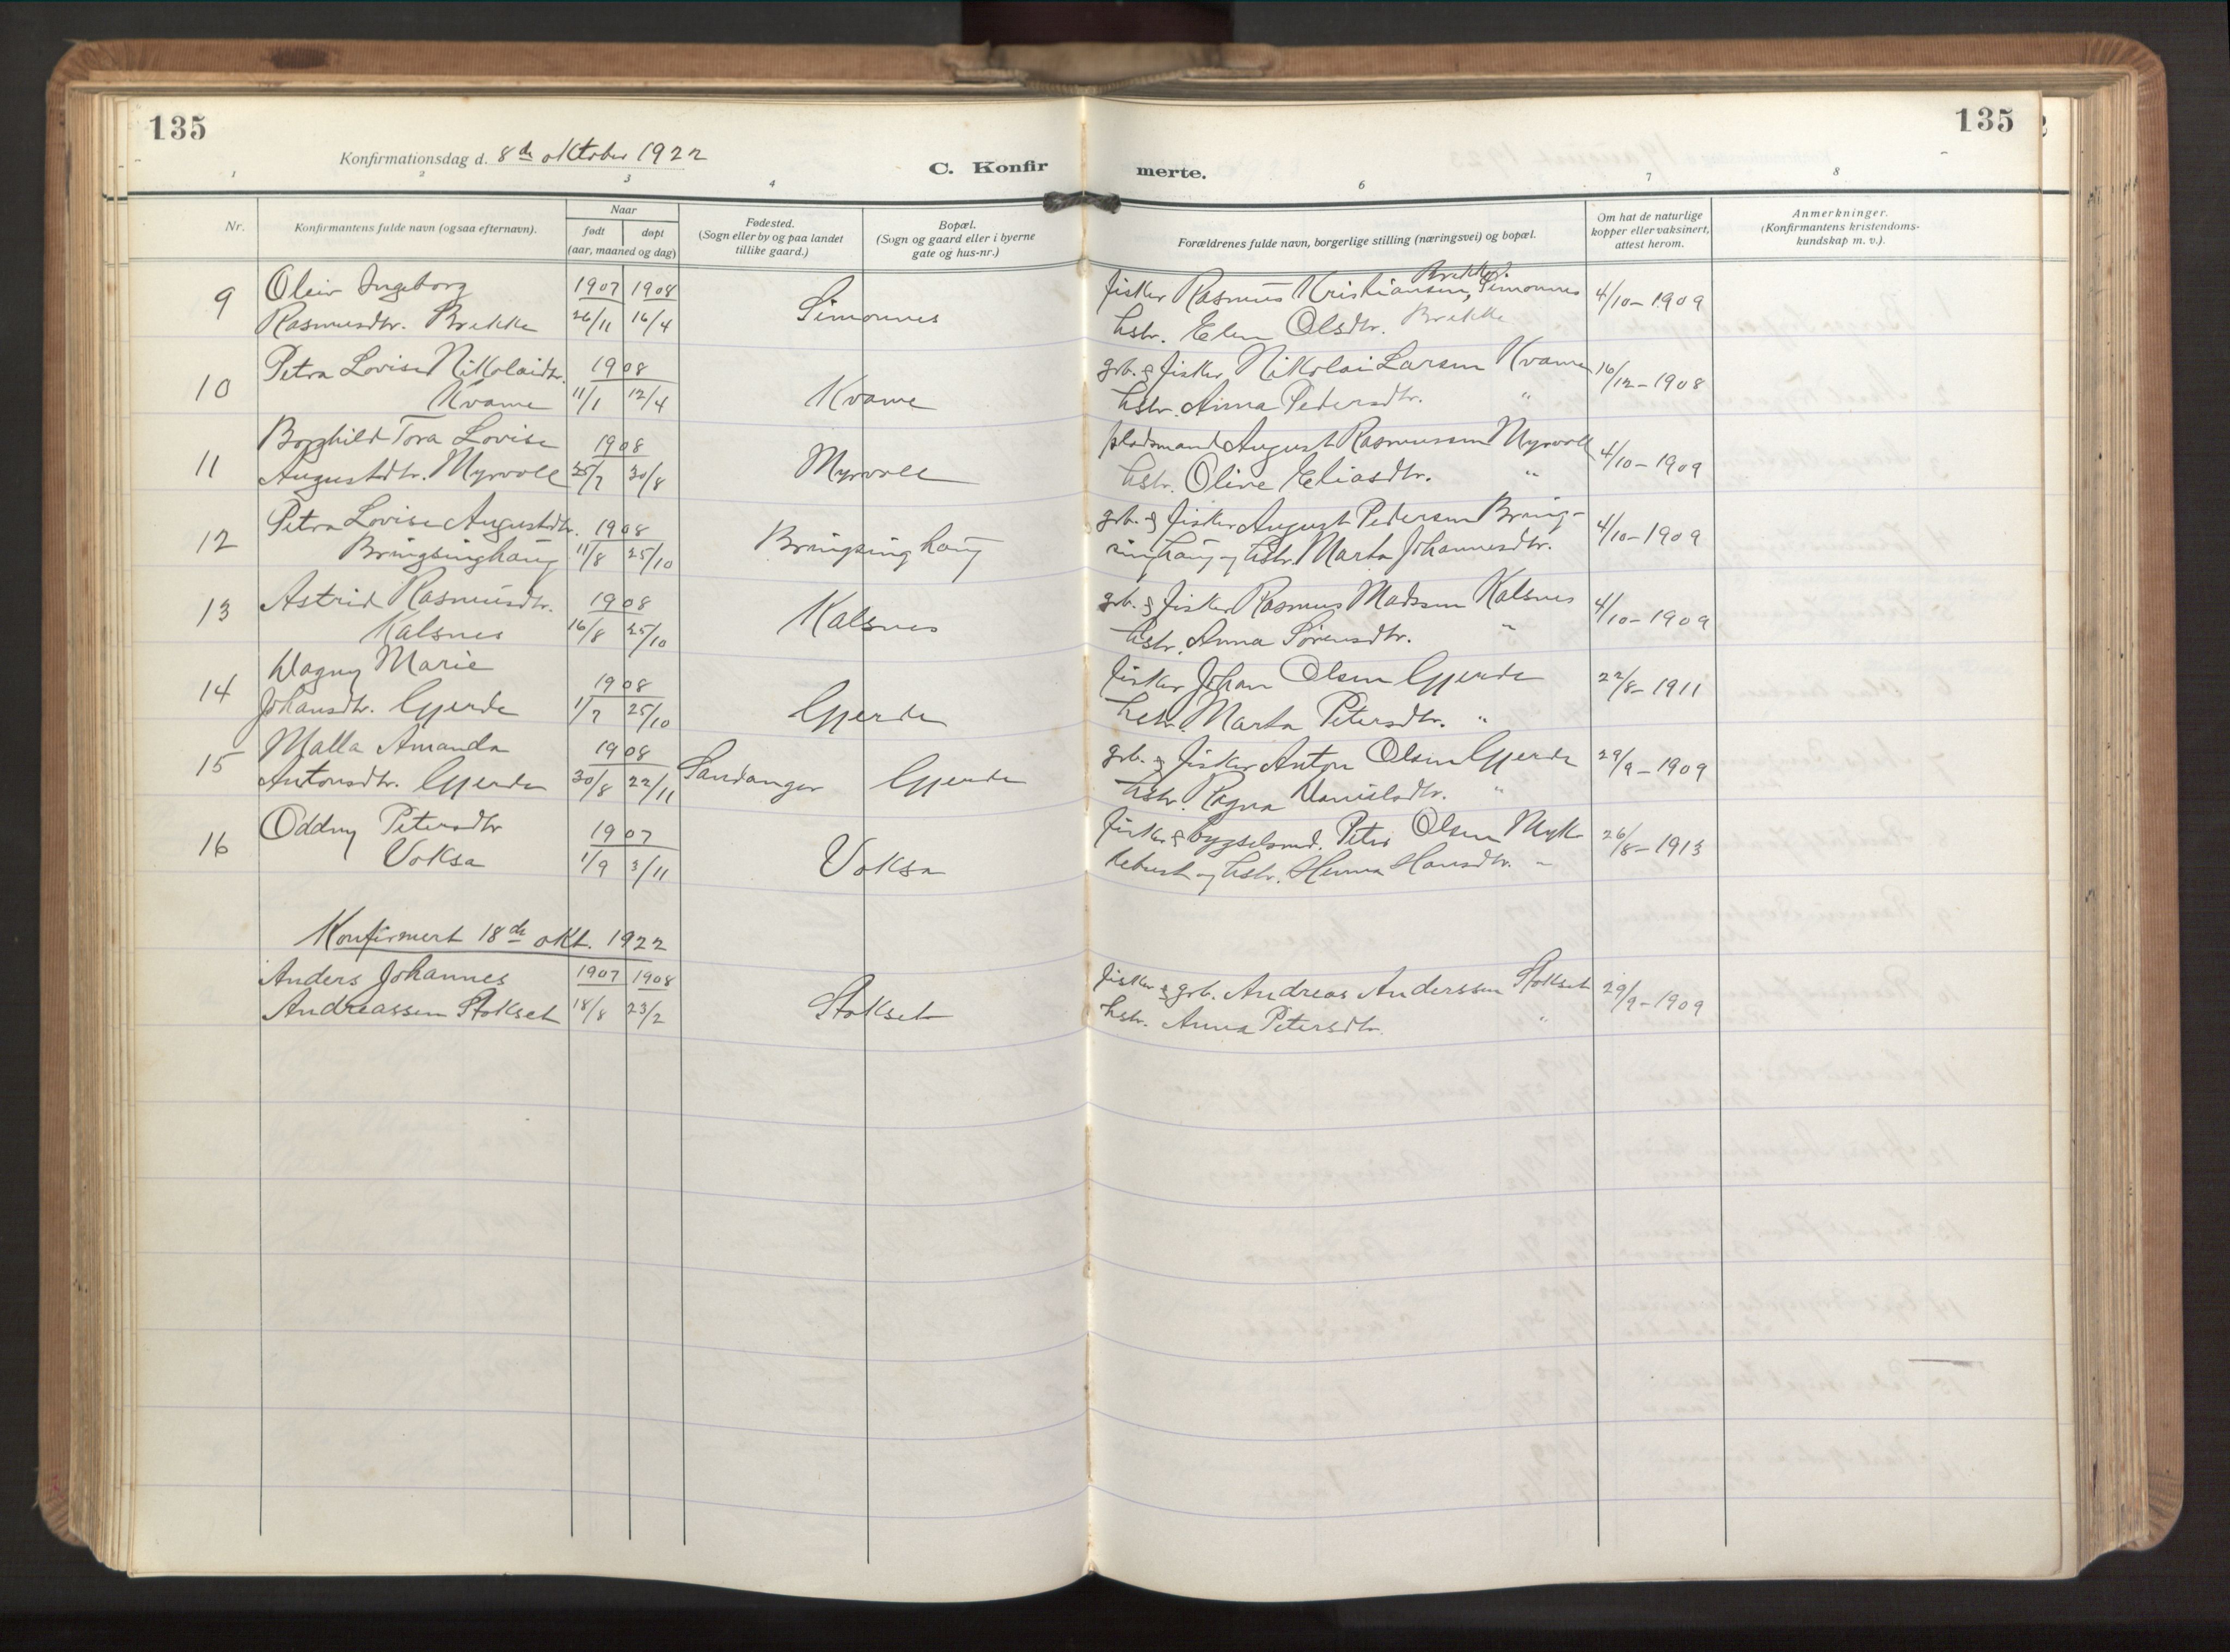 135
135
Konfirmationsdag d. 8de oktober 1922
C. Konfir merte.
1 2 3 4 6 7 8
Nr.
Konfirmantens fulde navn (ogsaa efternavn).
Naar
født døpt
(aar, maaned og dag)
Fødested.
(Sogn eller by og paa landet
tillike gaard.)
Bopæl.
(Sogn og gaard eller i byerne
gate og hus-nr.)
Forældrenes fulde navn, borgerlige stilling (næringsvei) og bopæl.
Om hat de naturlige
kopper eller vaksinert,
attest herom.
Anmerkninger.
(Konfirmantens kristendoms-
kundskap m. v.).
9 Ingeborg 1907 1908 Simonnes fisker Rasmus Kristiansen Brekke, Simonnes 4/10-1909
Rasmusdtr. Brekke 26/11 16/4 hstr. Elen Olsdtr. Brekke
10 Petra Lovise Nikolaidtr. 1908 Kvame grb. & fisker Nikolai Larsen Kvame 16/12-1908
Kvame 11/1 12/4 hstr. Anna Pedersdtr. "
11 Borghild Tora Lovise 1908 Myrvoll pladsmand August Rasmussen Myrvoll 4/10-1909
Augustdtr. Myrvoll 25/7 30/8 hstr. Olive Eliasdtr. "
12 Petra Lovise Augustdtr. 1908 Bringsinghaug grb. & fisker August Pedersen Bring- 4/10-1909
Bringsinghaug 11/8 25/10 singhaug og hstr. Marta Johannesdtr.
13 Astrid Rasmusdtr. 1908 Kalsnes grb. & fisker Rasmus Madsen Kalsnes 4/10-1909
Kalsnes 16/8 25/10 hstr. Anna Sørensdtr. "
14 Dagny Marie 1908 Gjerde fisker Johan Olsen Gjerde 22/8-1911
Johansdtr. Gjerde 1/7 25/10 hstr. Marta Petersdtr. "
15 Malla Amanda 1908 Sandanger Gjerde grb. & fisker Anton Olsen Gjerde 29/9-1909
Antonsdtr. Gjerde 30/8 22/11 hstr. Ragna "
16 Oddny Petersdtr 1907 Voksa fisker & bygselmd. Peter Olsen Myk- 26/8-1913
Voksa 1/9 3/11 lebust og hstr. Hansdtr. "
Konfirmert 18de okt. 1922
Anders Johannes 1907 1908 Stokset fisker & grb. Andreas Anderssen Stokset 29/9-1909
Andreassen Stokset 18/8 23/2 hstr. Anna Petersdtr. "